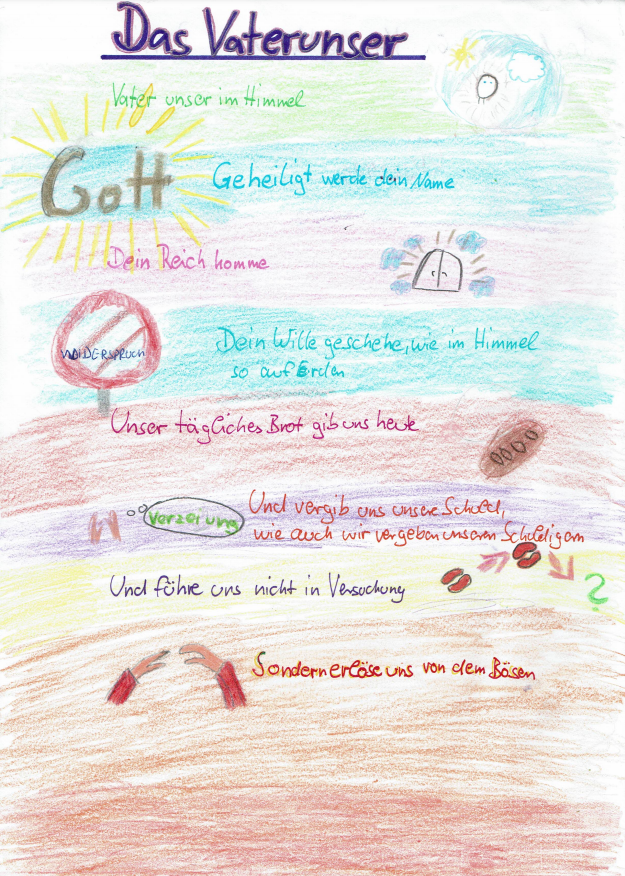 Das Vaterunser
Vater unser im Himmel
Gott
Geheiligt werde dein Name
Dein Reich komme
WIDERSPRUCH
Dein Wille geschehe, wie im Himmel
so auf Erden
Unser tägliches Brot gib uns heute
Verzeiung
Und vergib uns unsere Schuld,
wie auch wir vergeben unseren Schuldigern
Und führe uns nicht in Versuchung
?
Sondern erlöse uns von dem Bösen